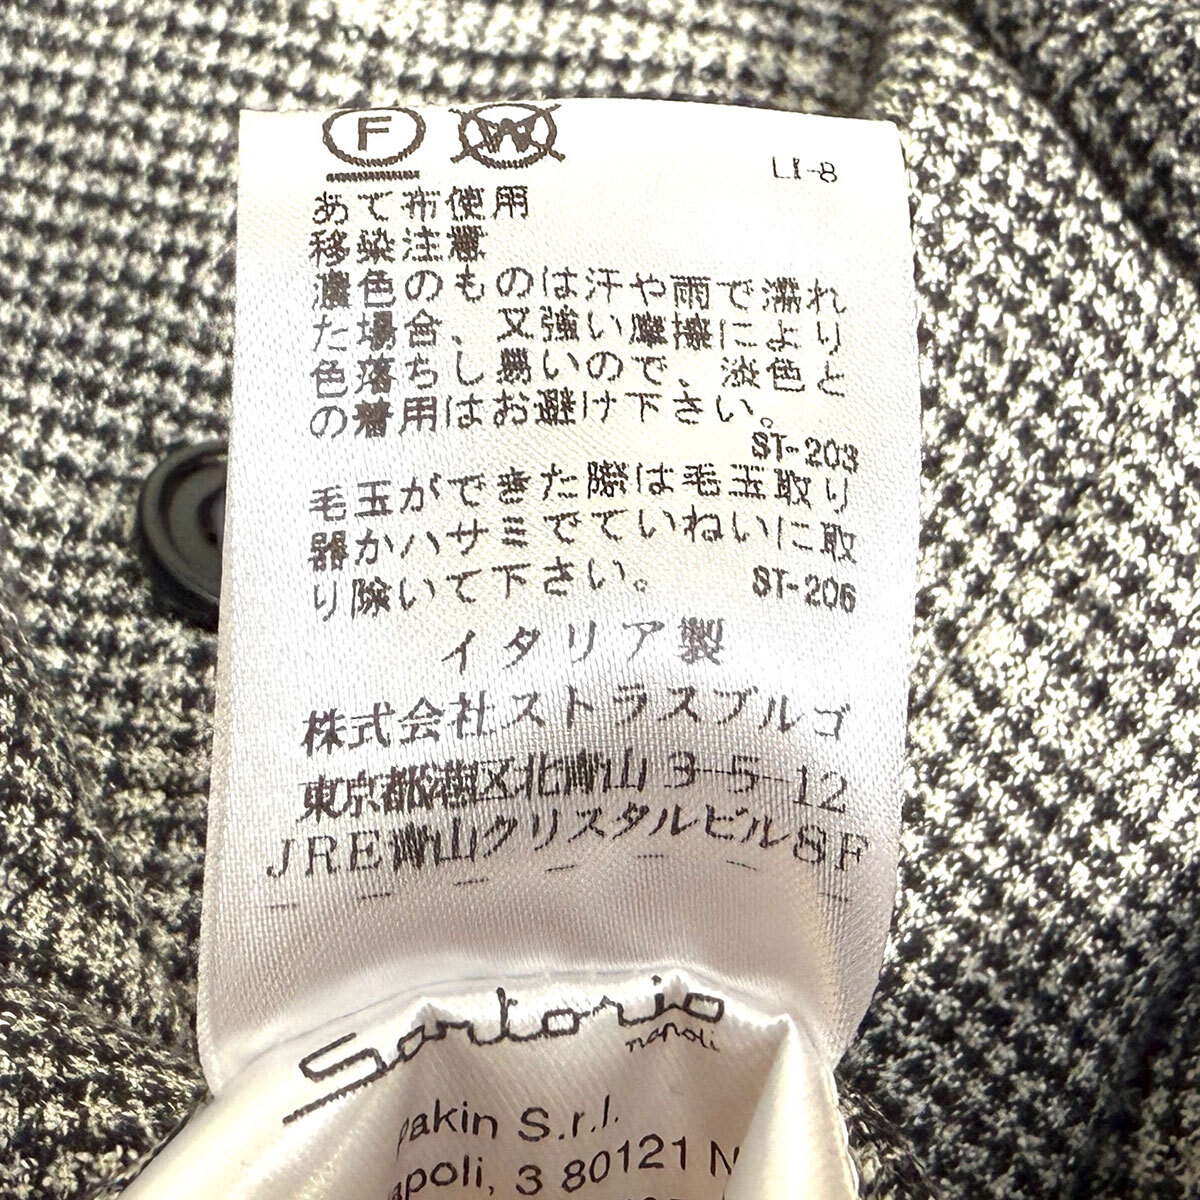 F W
LI-8
あて布使用
移染注意
濃色のものは汗や雨で濡れ
た場合、又強い摩擦により
色落ちし易いので、淡色と
の着用はお避け下さい。
ST-203
毛玉ができた際は毛玉取り
器かハサミでていねいに取
り除いて下さい。 ST-206
イタリア製
株式会社ストラスブルゴ
東京都港区北青山3-5-12
JRE青山クリスタルビル8F
Sartorio
napoli
pakin S.r.l.
apoli, 3 80121 N